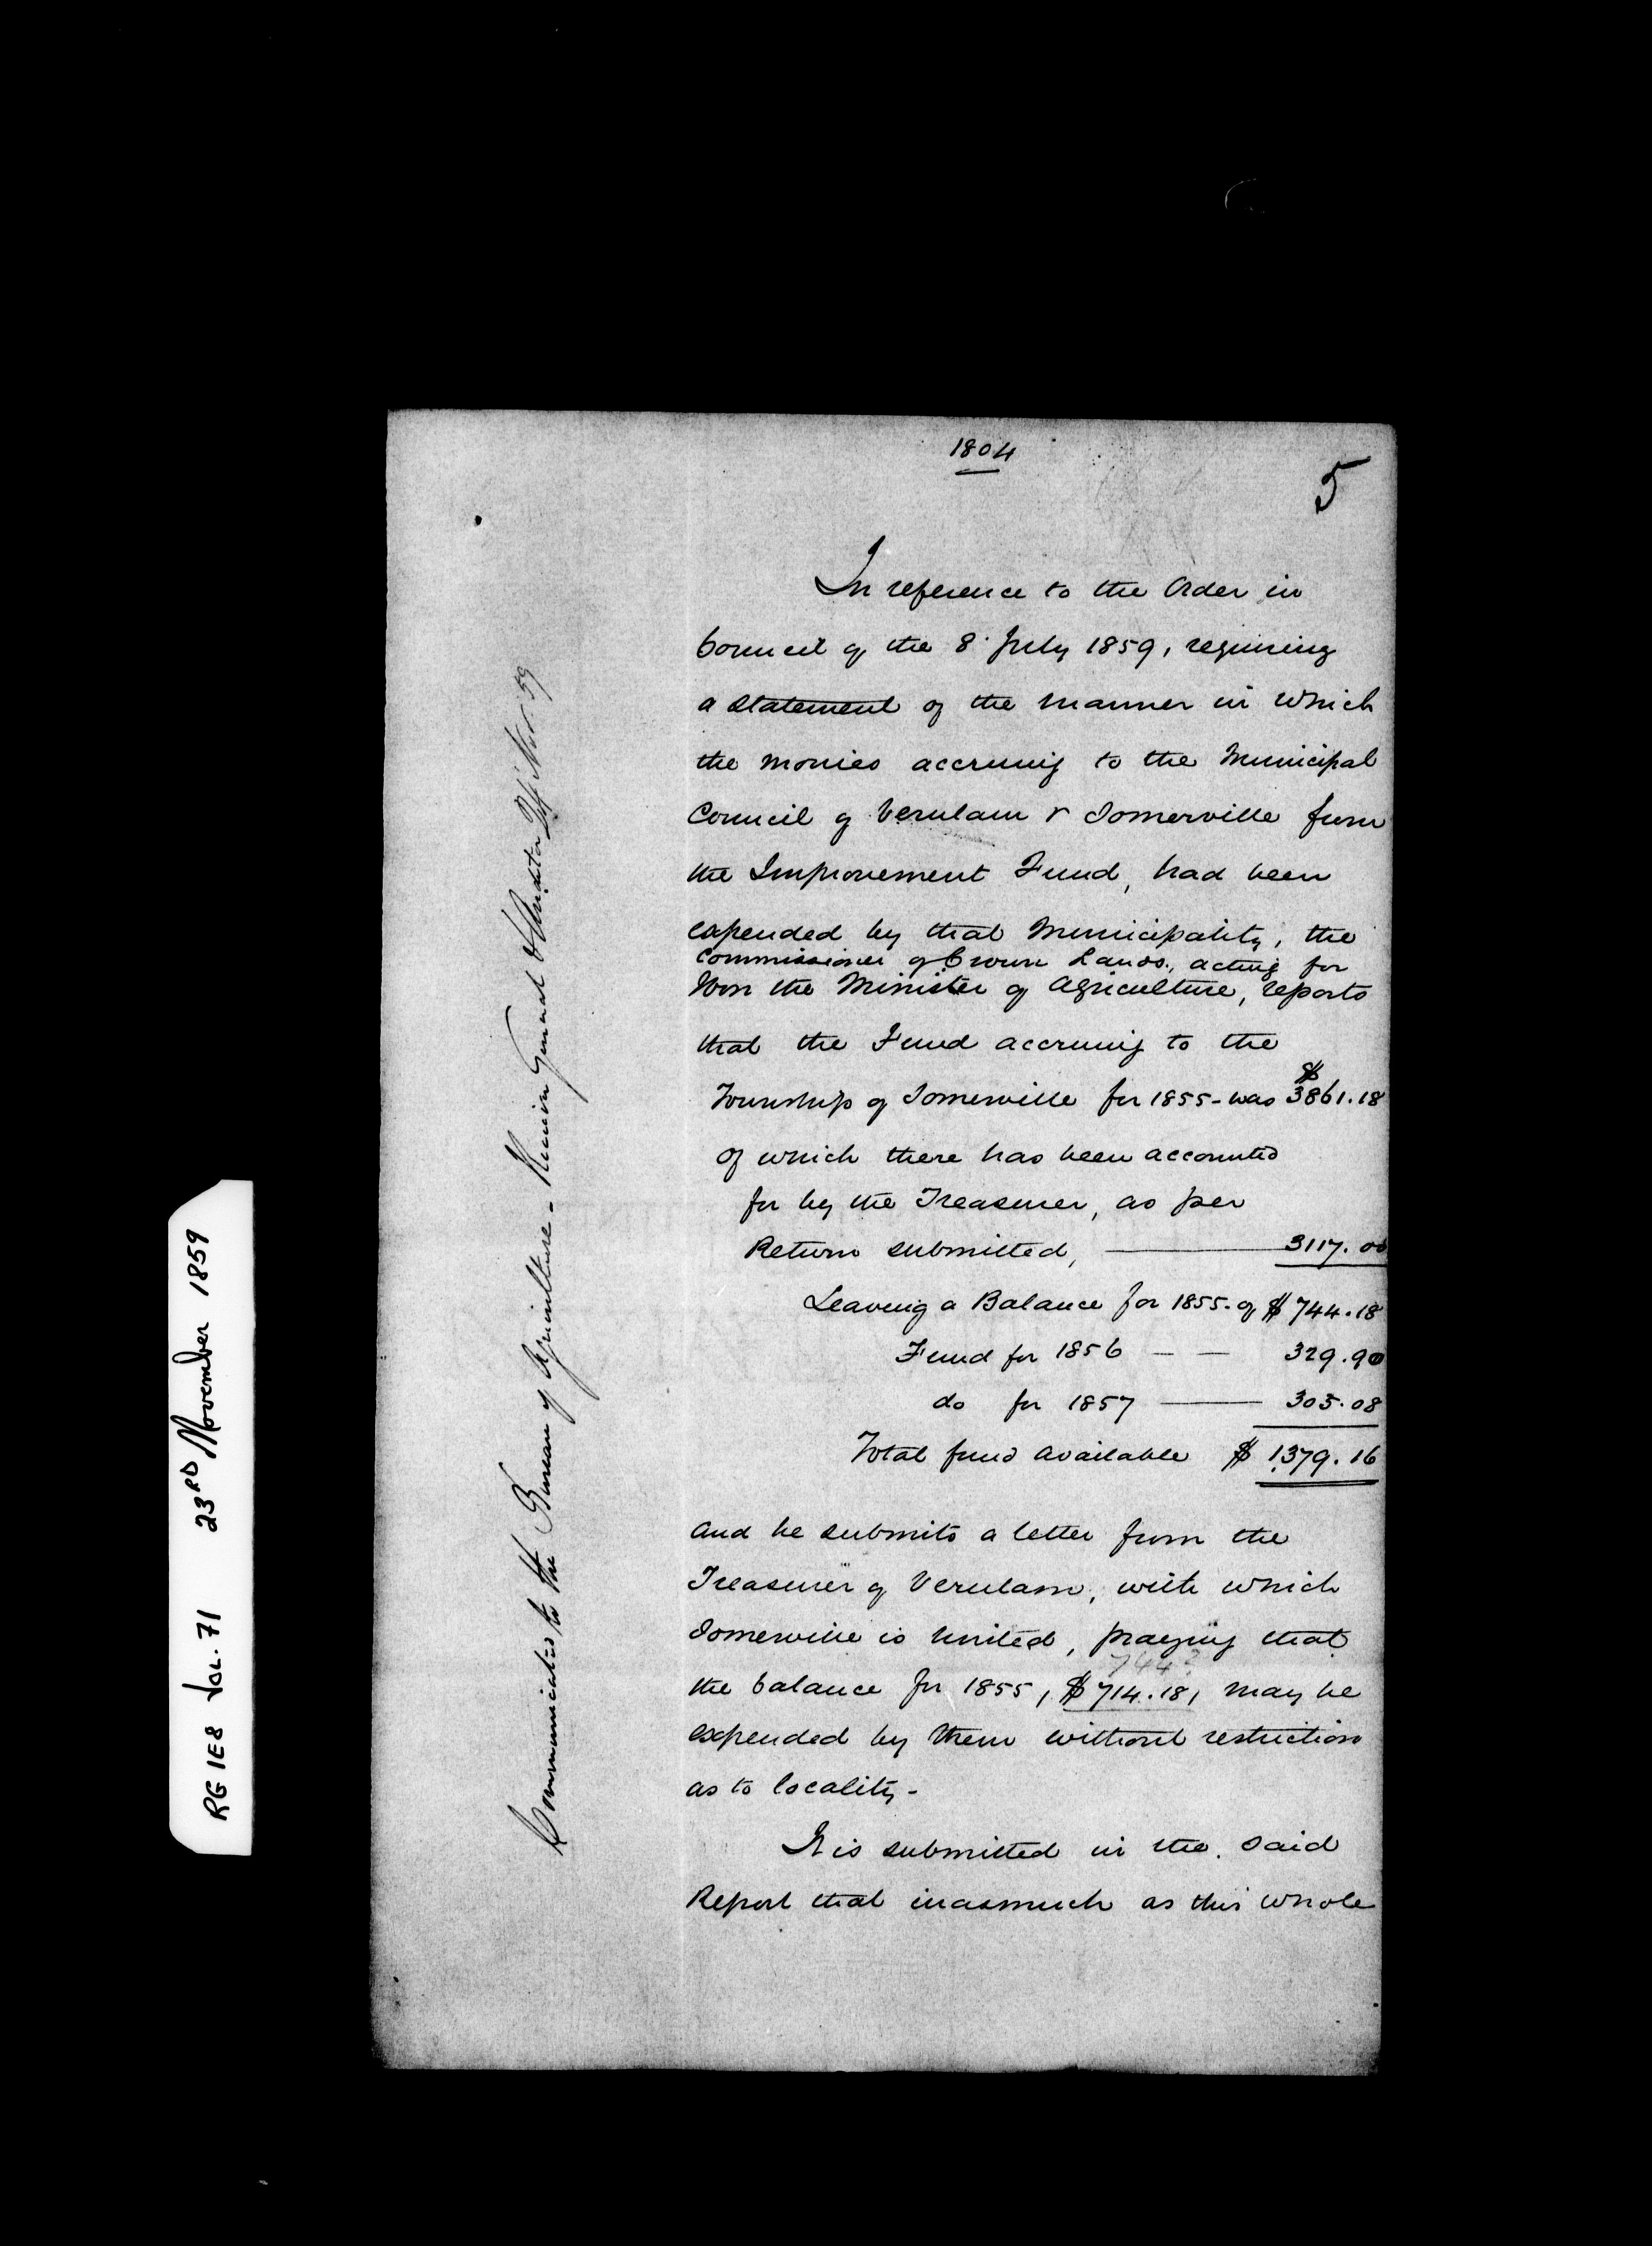 1804
5
In reference to the Order in
Council of the 8' July 1859, requiring
a statement of the manner in which
the monies accruing to the Municipal
Council of Verulam & Somerville from
the Improvement Fund, had been
expended by that Municipality, the
Commissioner of Crown Lands, acting for
Hon the Minister of Agriculture, reports
that the Fund accruing to the
Township of Somerville for 1855 - was $3861.18
of which there has been accounted
for by the Treasurer, as per
Return submitted, 3117.00
Leaving a Balance for 1855. of $744.18
Fund for 1856 — — 329.90
do for 1857 — 305.08
Total fund available $1379.16
and he submits a letter from the
Treasurer of Verulam, with which
Somerville is United, praying that
744?
the balance for 1855, $714.18, may be
expended by them without restriction
as to locality -
It is submitted in the said
Report that inasmuch as this whole
Communicated to the Bureau of Agriculture - Receiver General & Auditor Nov. 59
RG 1E8 Vol. 71 23RD November 1859